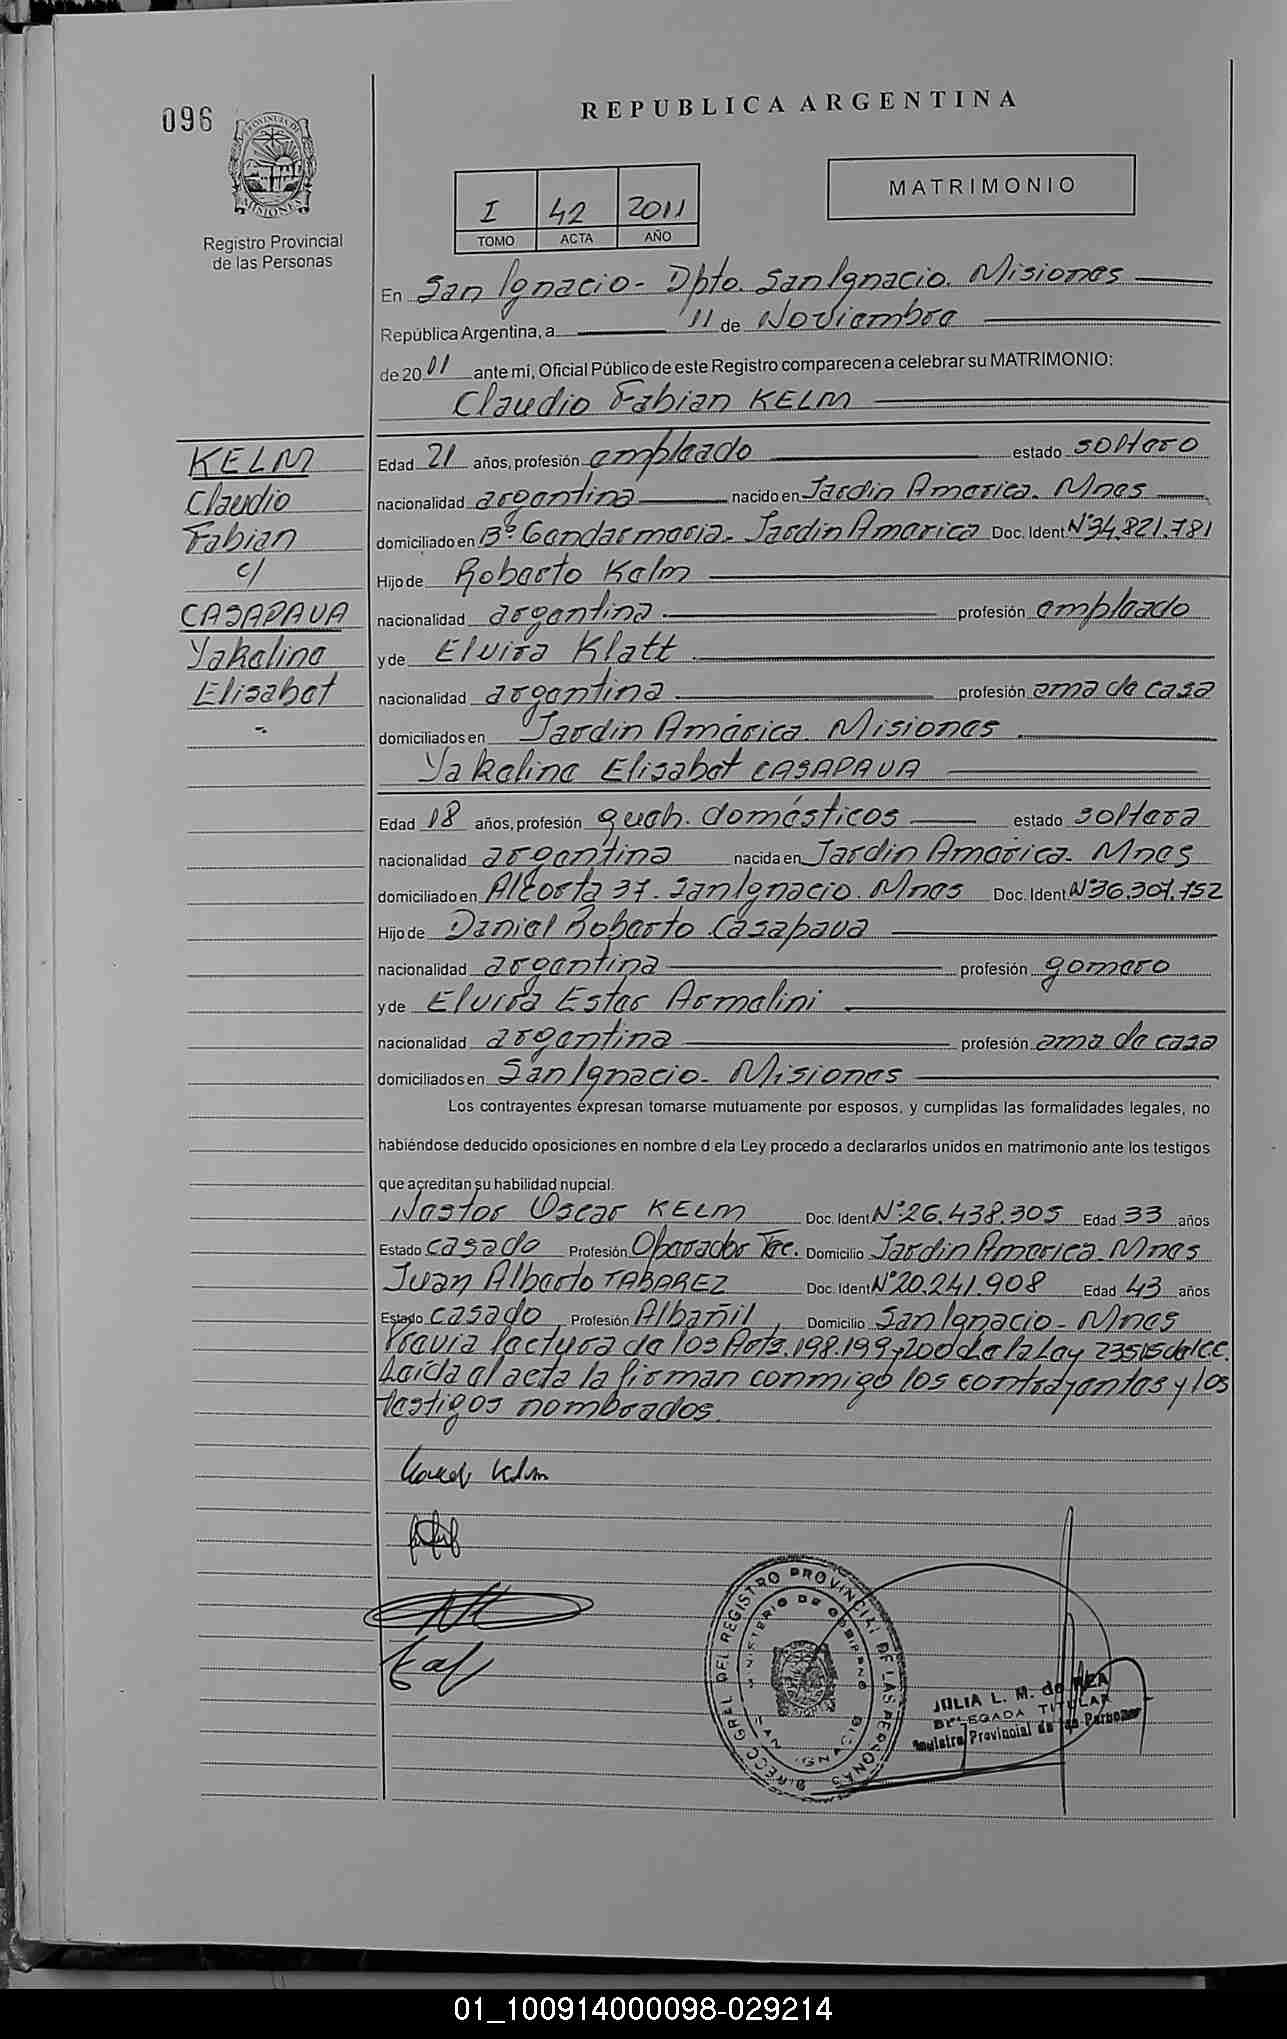 096
REPUBLICA ARGENTINA
PROVINCIA DE MISIONES
Registro Provincial
de las Personas
I 42 2011
TOMO ACTA AÑO
MATRIMONIO
En San Ignacio - Dpto. San Ignacio. Misiones
República Argentina, a 11 de Noviembre
de 2001 ante mi, Oficial Público de este Registro comparecen a celebrar su MATRIMONIO:
Claudio Fabian KELM
KELM
Claudio
Fabian
c/
CASAPAVA
Yakeline
Elisabet
Edad 21 años, profesión empleado estado soltero
nacionalidad argentina nacido en Jardin America. Mnes
domiciliado en Bº Gendarmeria. Jardin America Doc. Ident. Nº34.821.781
Hijo de Roberto Kelm
nacionalidad argentina profesión empleado
y de Elvira Klatt
nacionalidad argentina profesión ama de casa
domiciliados en Jardin América. Misiones
Yakeline Elisabet CASAPAVA
Edad 18 años, profesión queh. domésticos estado soltera
nacionalidad argentina nacida en Jardin América. Mnes
domiciliado en Alcorta 37. San Ignacio. Mnes Doc. Ident. Nº36.307.752
Hijo de Daniel Roberto Casapava
nacionalidad argentina profesión gomero
y de Elvira Ester Armelini
nacionalidad argentina profesión ama de casa
domiciliados en San Ignacio - Misiones
Los contrayentes expresan tomarse mutuamente por esposos, y cumplidas las formalidades legales, no
habiéndose deducido oposiciones en nombre d ela Ley procedo a declararlos unidos en matrimonio ante los testigos
que acreditan su habilidad nupcial.
Nestor Oscar KELM Doc. Ident. Nº26.438.305 Edad 33 años
Estado casado Profesión Operador Tec. Domicilio Jardin America. Mnes
Juan Alberto TABAREZ Doc. Ident. Nº20.241.908 Edad 43 años
Estado casado, Profesión Albañil, Domicilio San Ignacio - Mnes
Previa lectura de los Arts. 198.199 y 200 de la Ley 23515 del CC.
Leída el acta la firman conmigo los contrayentes y los
testigos nombrados.
Kelm
DIRECC. GRAL. DEL REGISTRO PROVINCIAL DE LAS PERSONAS
MINISTERIO DE GOBIERNO
SAN IGNACIO
JULIA L. M. de REA
DELEGADA TITULAR
Registro Provincial de las Personas
01_100914000098-029214